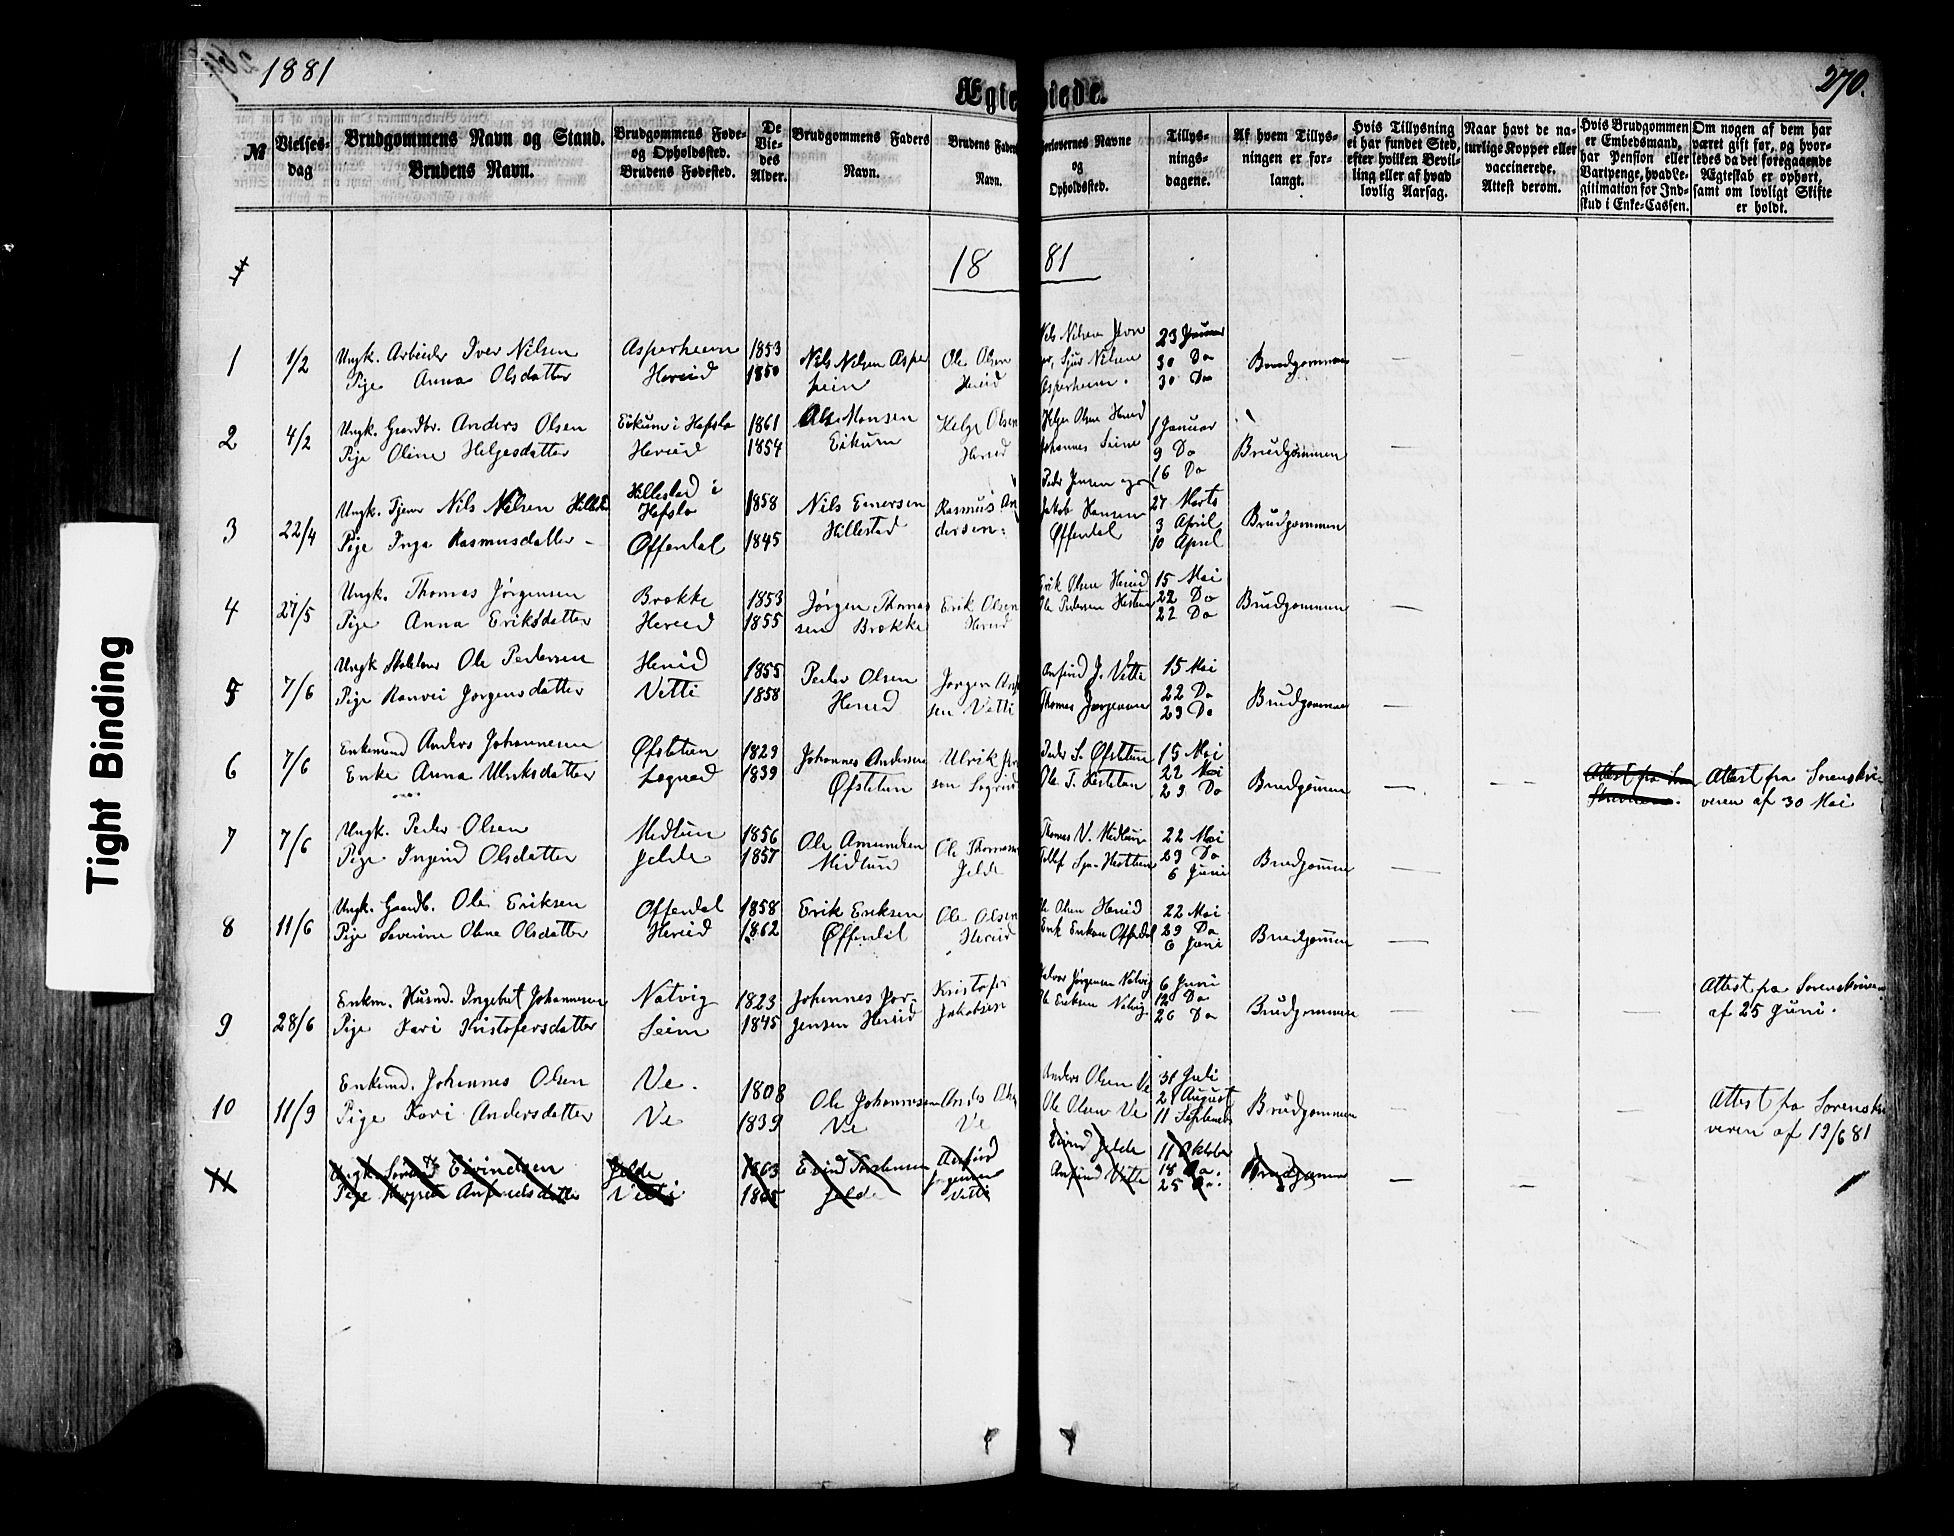 1881
Ægteviede.
270.
№
Vielses-
dag
Brudgommens Navn og Stand.
Brudens Navn.
Brudgommens Føde-
og Opholdssted.
Brudens Fødested.
De
Vie-
des
Alder.
Brudgommens Faders
Navn.
Brudens Faders
Navn.
Forlovernes Navne
og
Opholdssted.
Tillys-
nings-
dagene.
Af hvem Tillys-
ningen er for-
langt.
Hvis Tillysning
ei har fundet Sted,
efter hvilken Bevil-
ling eller af hvad
lovlig Aarsag.
Naar havt de na-
turlige Kopper eller
vaccinerede.
Attest derom.
Hvis Brudgommen
er Embedsmand,
har Pension eller
Vartpenge, hvad Le-
gitimation for Ind-
skud i Enke-Cassen.
Om nogen af dem har
været gift før, og hvor-
ledes da det foregaaende
Ægteskab er ophørt,
samt om lovligt Skifte
er holdt.
1881
1
1/2
Ungk. Arbeider Iver Nilsen
Pige Anna Olsdatter
Asperheim
Hereid
1853
1850
Nils Nilsen Aspe
heim
Ole Olsen
Hereid
Nils Nilsen
Sjur Nilsen
Asperheim.
23 Januar
30 Do
30 Do
Brudgommen
2
4/2
Ungk. Gaardbr. Anders Olsen
Pige Oline Helgesdatter
Eikum i Hafslo
Hereid
1861
1854
Ole Monsen
Eikum
Helge Olsen
Hereid
Helge Olsen Hereid
Johannes Seim
1 Januar
9 Do
16 Do
Brudgommen
3
22/4
Ungk. Tjener Nils Nilsen Hillestad
Pige Inga Rasmusdatter
Hillestad i
Hafslo
Offerdal
1858
1845
Nils Einersen
Hillestad
Rasmus An
dersen.
Peder Jensen og
Jakob Hansen
Offerdal
27 Marts
3 April
10 April
Brudgommen
4
27/5
Ungk. Thomas Jørgensen
Pige Anna Eriksdatter
Brække
Hereid
1853
1855
Jørgen Thomas
sen Brække
Erik Olsen
Hereid
Erik Olsen Hereid
Ole Pedersen
15 Mai
22 Do
22 Do
Brudgommen
5
7/6
Ungk Ole Pedersen
Pige Ranvei Jørgensdatter
Hereid
Vetti
1855
1858
Peder Olsen
Hereid
Jørgen Anf
sen Vetti
Anfind J. Vetti
Thomas Jørgensen
15 Mai
22 Do
23 Do
Brudgommen
6
7/6
Enkemand Anders Johannesen
Enke Anna Ulriksdatter
Øfstetun
1829
1839
Johannes Andersen
Øfstetun
Ulrik
sen
Peder S. Øfstetun
Ole T.
15 Mai
22 Mai
23 Do
Brudgommen
Attest fra Sorenskri-
veren af 30 Mai
7
7/6
Ungk. Peder Olsen
Pige Ingrid Olsdatter
Midtun
Jelde
1856
1857
Ole Amundsen
Midtun
Ole Thomasen
Jelde
Thomas V. Midtun
22 Mai
29 Do
6 Juni
Brudgommen
8
11/6
Ungk. Gaardb. Ole Eriksen
Pige Severine Oline Olsdatter
Offerdal
Hereid
1858
1862
Erik Eriksen
Offerdal
Ole Olsen
Hereid
Ole Olsen Hereid
Erik Eriksen Offerdal
22 Mai
29 Do
6 Juni
Brudgommen
9
28/6
Enkm. Husmd. Ingebrit Johannesen
Pige Kari Kristofersdatter
Natvig
Seim
1823
1845
Johannes Jør-
gensen Hereid
Kristofer
Jakobsen
Halvor Jørgensen Natvig
Ole Eriksen Natvig
6 Juni
12 Do
26 Do
Brudgommen
Attest fra Sorenskriveren
af 25 Juni.
10
11/9
Enkemd. Johannes Olsen
Pige Kari Andersdatter
Ve.
Ve
1808
1839
Ole Johannesen
Ve
Anders Olsen
Ve
Anders Olsen Ve
Ole Olsen Ve
31 Juli
21 August
11 September
Brudgommen
Attest fra Sorenskri
veren af 19/6 81
11
Eivindsen
Pige Anfindsdatter
Jelde
Vetti
1863
1865
Eivind Torstensen
Jelde
Anfind
Jørgensen
Vetti
Eivind Jelde
Anfind Vetti
11 Oktober
18 Do.
25 Do.
Brudgommen
Tight Binding